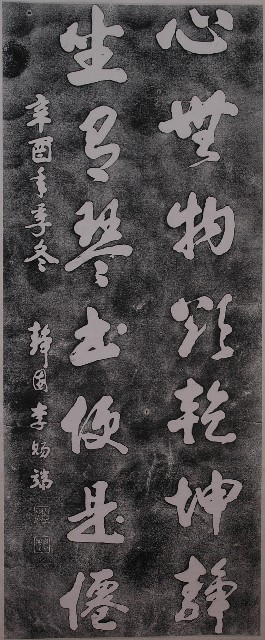 心無物欲乾坤靜
坐有琴書便是僊
辛酉年季冬 靜園李賜